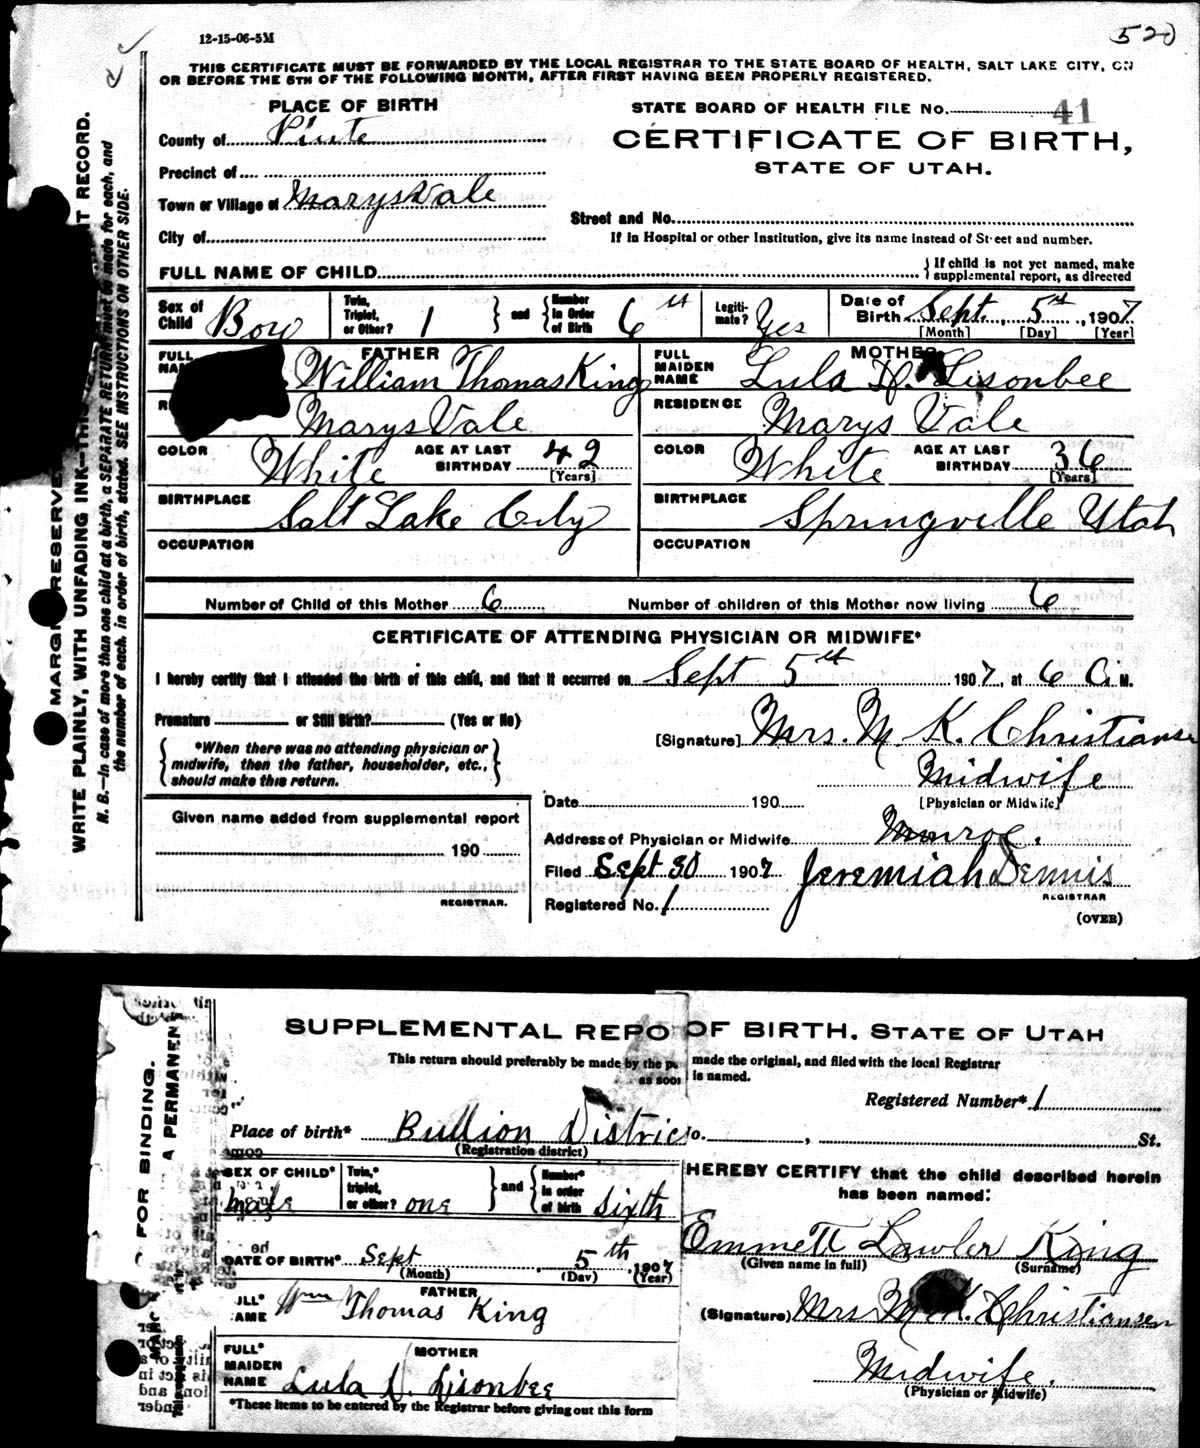 12-15-06-5M
520
THIS CERTIFICATE MUST BE FORWARDED BY THE LOCAL REGISTRAR TO THE STATE BOARD OF HEALTH, SALT LAKE CITY, ON
OR BEFORE THE 5TH OF THE FOLLOWING MONTH, AFTER FIRST HAVING BEEN PROPERLY REGISTERED.
PLACE OF BIRTH
STATE BOARD OF HEALTH FILE No. 41
County of Piute
CERTIFICATE OF BIRTH,
STATE OF UTAH.
Precinct of
Town or Village of MarysVale
Street and No.
City of
If in Hospital or other Institution, give its name instead of Street and number.
FULL NAME OF CHILD
If child is not yet named, make
supplemental report, as directed
Sex of Child Boy Twin, Triplet, or Other? 1 and Number in Order of Birth 6th Legiti-mate? Yes Date of Birth Sept. 5th, 1907
[Month] [Day] [Year]
FATHER
William Thomas King
MOTHER
FULL MAIDEN NAME Lula D. Lisonbee
MarysVale
RESIDENCE Marys Vale
COLOR White AGE AT LAST BIRTHDAY 42 [Years]
COLOR White AGE AT LAST BIRTHDAY 36 [Years]
BIRTHPLACE Salt Lake City
BIRTHPLACE Springville Utah
OCCUPATION
OCCUPATION
Number of Child of this Mother 6 Number of children of this Mother now living 6
CERTIFICATE OF ATTENDING PHYSICIAN OR MIDWIFE*
I hereby certify that I attended the birth of this child, and that it occurred on Sept 5th 1907, at 6 A. M.
Premature or Still Birth? (Yes or No)
[Signature] Mrs. M. K. Christianse
*When there was no attending physician or
midwife, then the father, householder, etc.,
should make this return.
Midwife
[Physician or Midwife]
Date 190
Given name added from supplemental report
190
REGISTRAR.
Address of Physician or Midwife Monroe.
Filed Sept 30 1907 Jeremiah Dennis
REGISTRAR
Registered No. 1
(OVER)
MARGIN RESERVE
WRITE PLAINLY, WITH UNFADING INK—THIS T RECORD.
N. B.—In case of more than one child at a birth, a SEPARATE RETURN must be made for each, and
the number of each, in order of birth, stated. SEE INSTRUCTIONS ON OTHER SIDE.
SUPPLEMENTAL REPO OF BIRTH. STATE OF UTAH
This return should preferably be made by the p made the original, and filed with the local Registrar
as soon is named.
Registered Number* 1
Place of birth* Bullion District o. , St.
(Registration district)
SEX OF CHILD* male Twin,* triplet, or other? one and Number* in order of birth sixth
HEREBY CERTIFY that the child described herein
has been named:
DATE OF BIRTH* Sept 5th, 1907
(Month) (Day) (Year)
Emmett Lawler King
(Given name in full) (Surname)
FATHER
ULL* AME Wm Thomas King
(Signature) Mrs M. K. Christiansen
MOTHER
FULL* MAIDEN NAME Lula D. Lisonbee
Midwife.
(Physician or Midwife)
*These items to be entered by the Registrar before giving out this form
FOR BINDING.
A PERMANEN